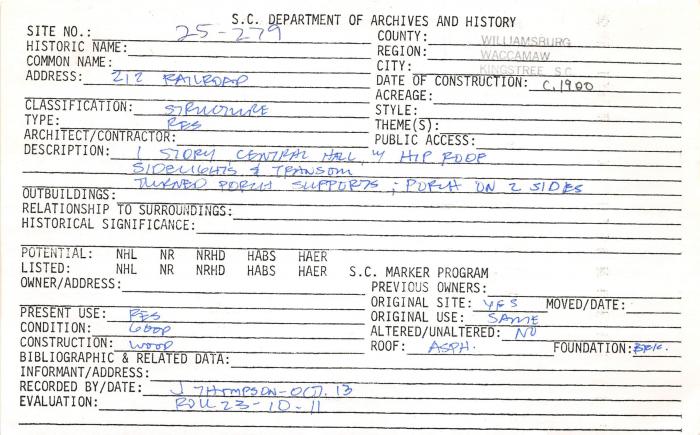 S.C. DEPARTMENT OF ARCHIVES AND HISTORY
SITE NO.: 25-279 COUNTY: WILLIAMSBURG
HISTORIC NAME: REGION: WACCAMAW
COMMON NAME: CITY: KINGSTREE S.C.
ADDRESS: 212 RAILROAD DATE OF CONSTRUCTION: C.1900
ACREAGE:
CLASSIFICATION: STRUCTURE STYLE:
TYPE: RES THEME(S):
ARCHITECT/CONTRACTOR: PUBLIC ACCESS:
DESCRIPTION: 1 STORY, CENTRAL HALL, W/ HIP ROOF
SIDELIGHTS & TRANSOM
TURNED PORCH SUPPORTS; PORCH ON 2 SIDES
OUTBUILDINGS:
RELATIONSHIP TO SURROUNDINGS:
HISTORICAL SIGNIFICANCE:
POTENTIAL: NHL NR NRHD HABS HAER
LISTED: NHL NR NRHD HABS HAER S.C. MARKER PROGRAM
OWNER/ADDRESS: PREVIOUS OWNERS:
ORIGINAL SITE: YES MOVED/DATE:
PRESENT USE: RES ORIGINAL USE: SAME
CONDITION: GOOD ALTERED/UNALTERED: NO
CONSTRUCTION: WOOD ROOF: ASPH. FOUNDATION:
BIBLIOGRAPHIC & RELATED DATA:
INFORMANT/ADDRESS:
RECORDED BY/DATE: J THOMPSON-OCT. 13
EVALUATION: ROLL 23-10-11